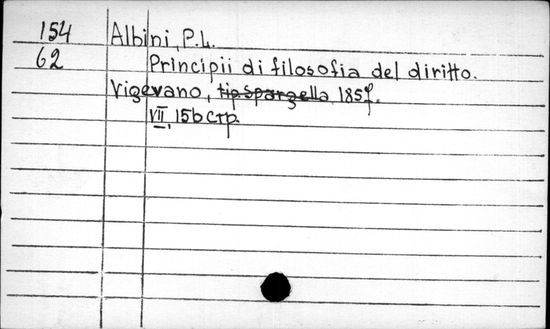 154 Albini, P.L.
62 Principii di filosofia del diritto.
Vigevano, tip Spargella,
VII, 156 стр.